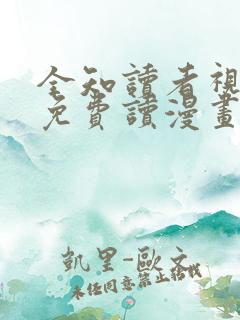 全知讀者視
免費讀漫畫
凱里-歐文
未經同意禁止轉載